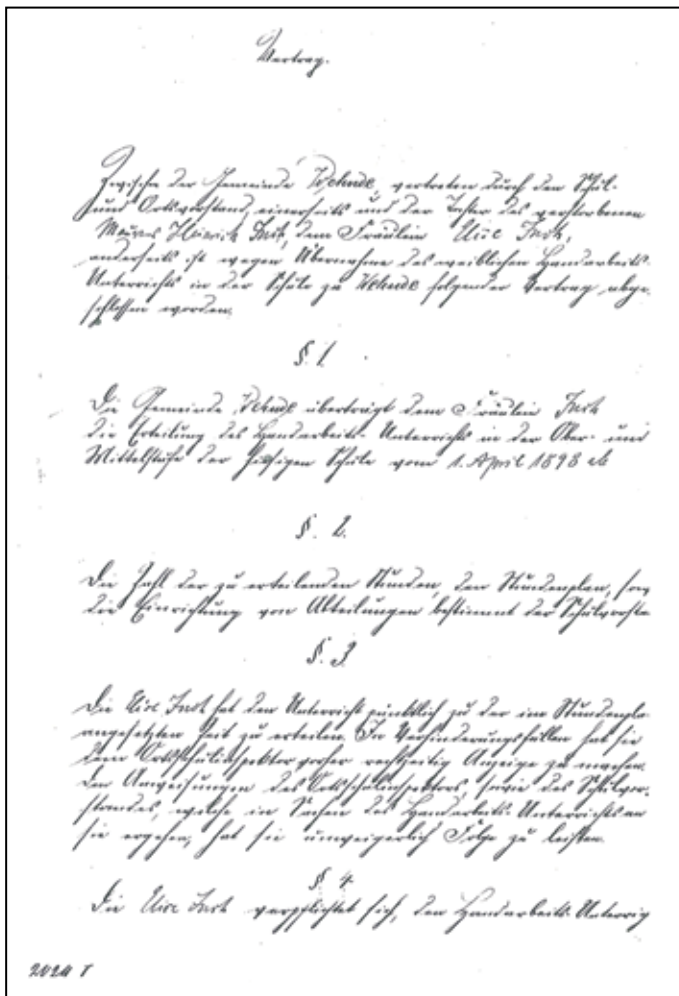 Vertrag.
Zwischen der Gemeinde Wehnde, vertreten durch den Schul-
und Ortsvorstand, einerseits und der Tochter des verstorbenen
Maurers Heinrich Just, dem Fräulein Elise Just,
anderseits ist wegen Übernahme des weiblichen Handarbeits-
Unterrichts in der Schule zu Wehnde folgender Vertrag abge-
schlossen worden.
§. 1.
Die Gemeinde Wehnde überträgt dem Fräulein Just
die Erteilung des Handarbeits-Unterrichts in der Ober- und
Mittelstufe der hiesigen Schule vom 1. April 1898 ab
§. 2.
Die Zahl der zu erteilenden Stunden, den Stundenplan, sow
die Einrichtung von Abteilungen bestimmt der Schulvorsta
§. 3.
Die Elise Just hat den Unterricht pünktlich zu der im Stundenpla
angesetzten Zeit zu erteilen. In Verhinderungsfällen hat sie
dem Ortsschulinspektor vorher rechtzeitig Anzeige zu machen.
Den Anweisungen des Ortsschulinspektors, sowie des Schulvor-
standes, welche in Sachen des Handarbeits-Unterrichts an
sie ergehen, hat sie unweigerlich Folge zu leisten.
§ 4.
Die Elise Just verpflichtet sich, den Handarbeits-Unterrich